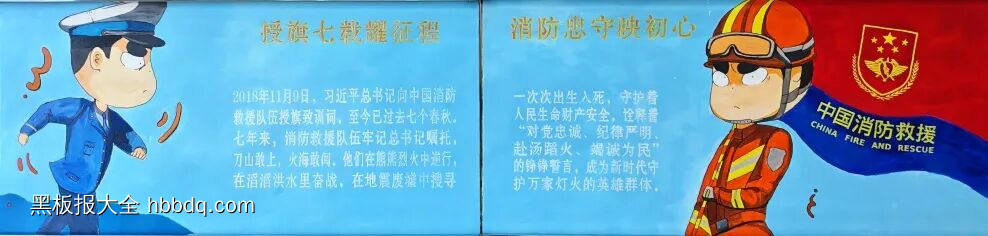 授旗七载耀征程
2018年11月9日，习近平总书记向中国消防
救援队伍授旗致训词，至今已过去七个春秋。
七年来，消防救援队伍牢记总书记嘱托，
刀山敢上，火海敢闯。他们在熊熊烈火中逆行，
在滔滔洪水里奋战，在地震废墟中搜寻
消防忠守映初心
一次次出生入死，守护着
人民生命财产安全，诠释着
“对党忠诚、纪律严明、
赴汤蹈火、竭诚为民”
的铮铮誓言，成为新时代守
护万家灯火的英雄群体。
中国消防救援
CHINA FIRE AND RESCUE
黑板报大全 hbbdq.com